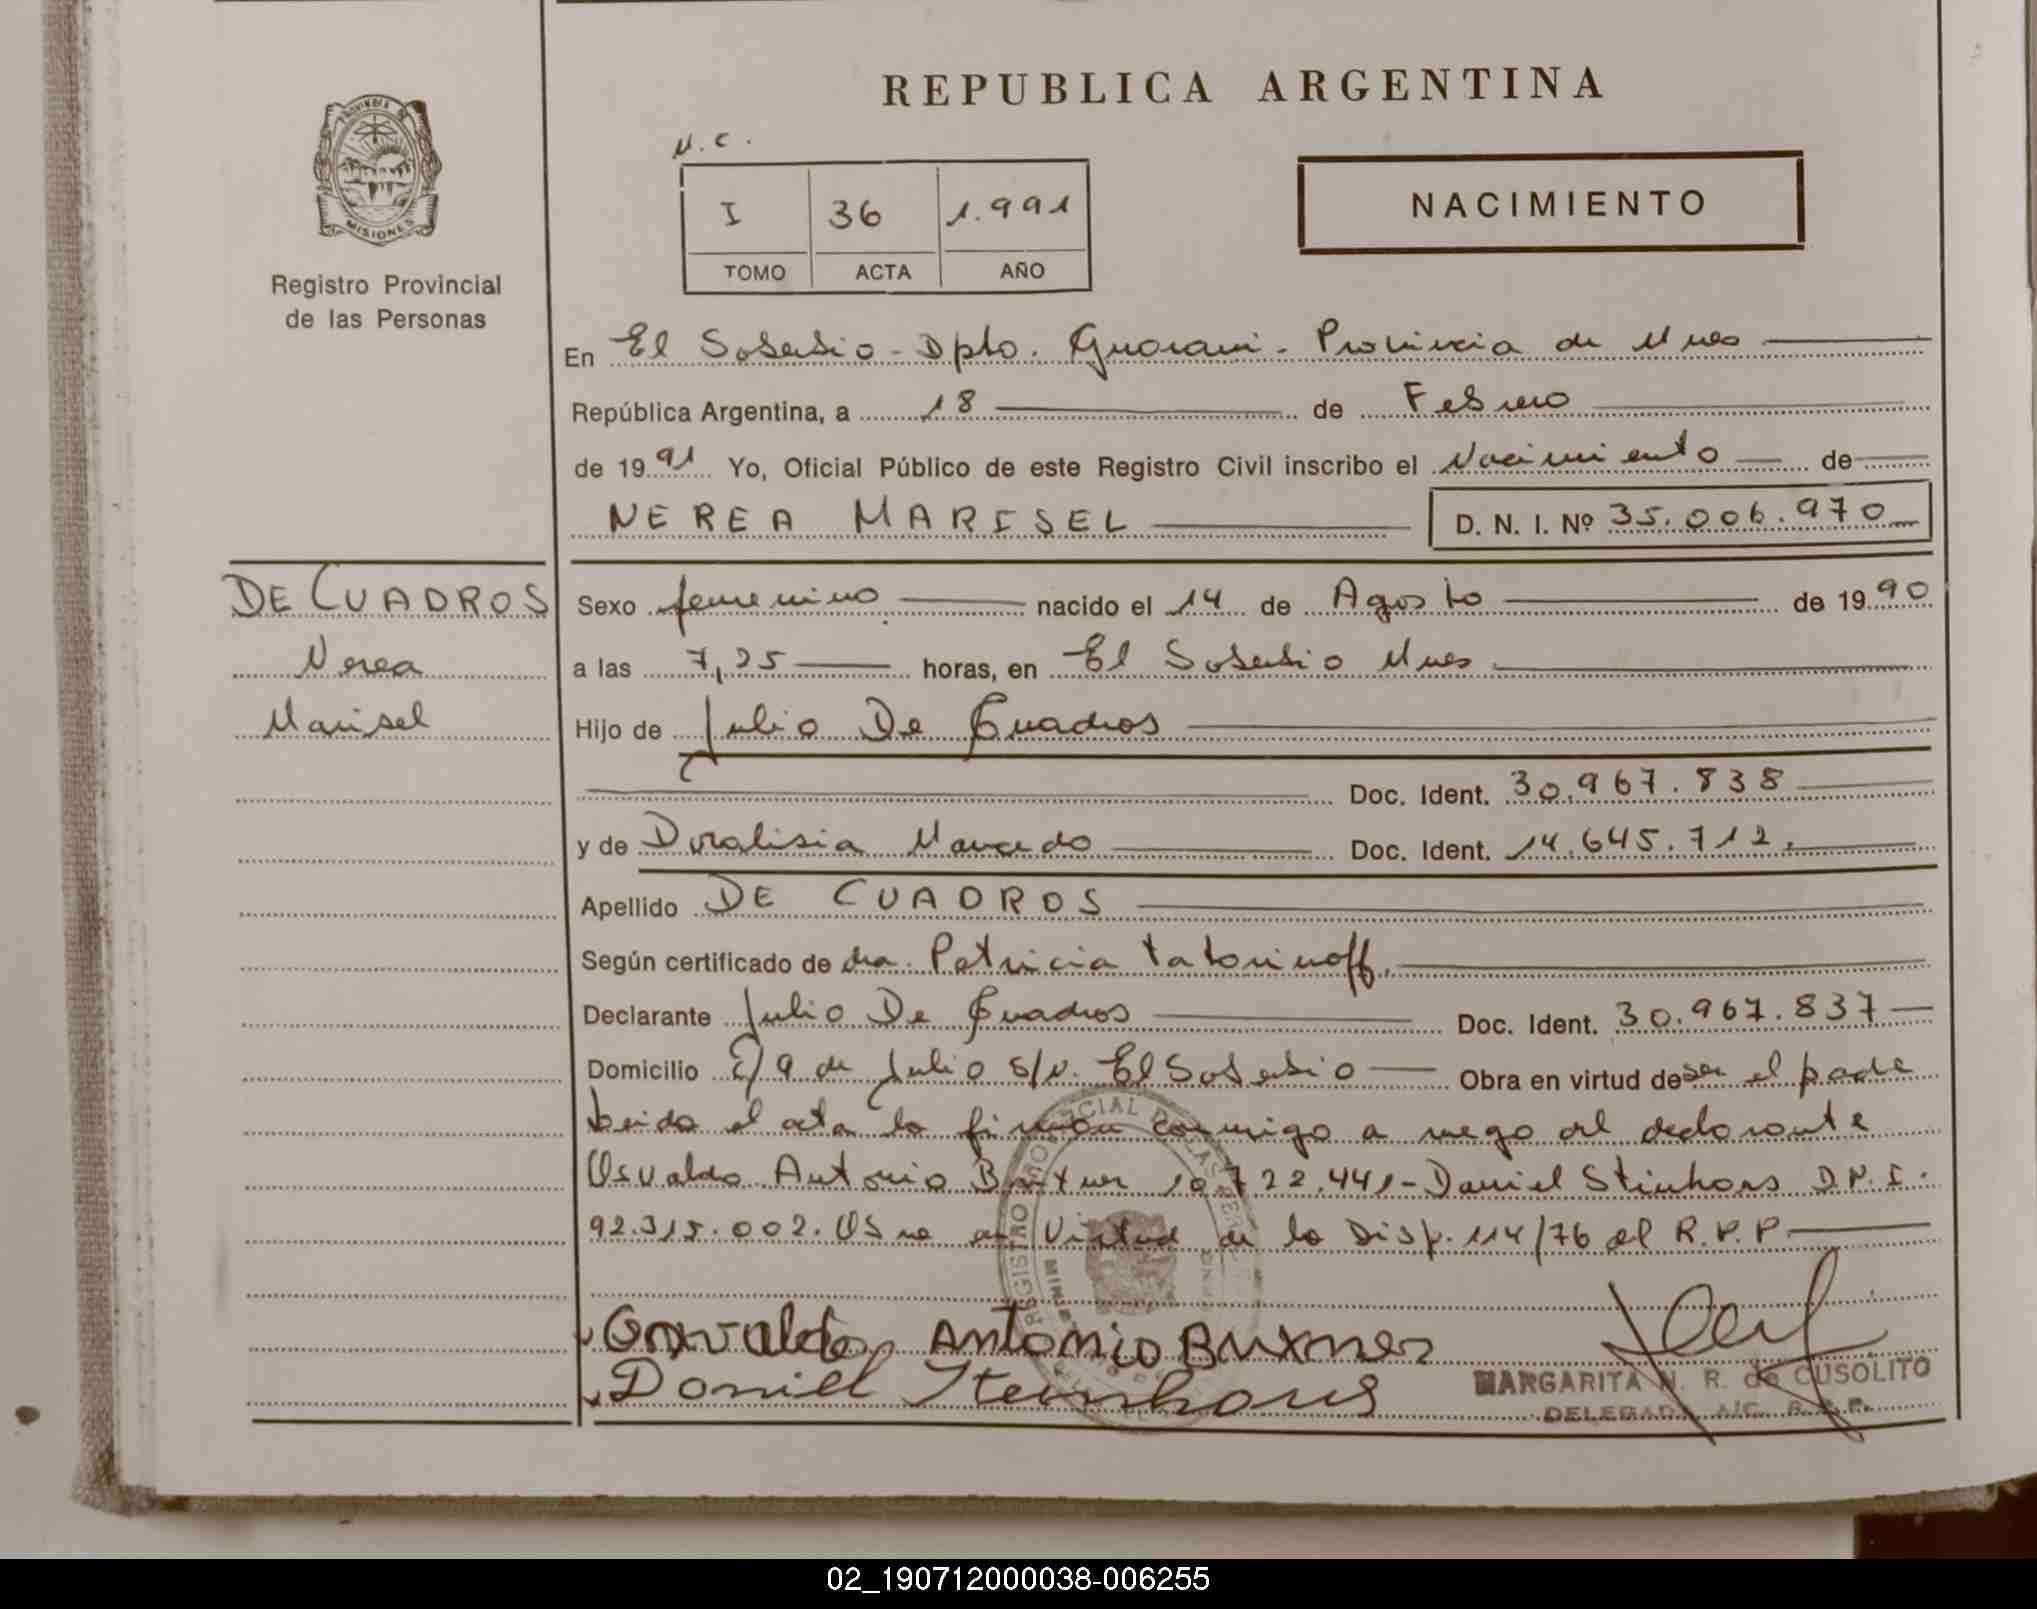 REPUBLICA ARGENTINA
N.C.
I 36 1.991
TOMO ACTA AÑO
NACIMIENTO
PROVINCIA DE
MISIONES
Registro Provincial
de las Personas
En El Soberbio - Dpto. Guarani - Provincia de Mnes
República Argentina, a 18 de Febrero
de 1991 Yo, Oficial Público de este Registro Civil inscribo el Nacimiento de
NEREA MARISEL D. N. I. Nº 35.006.970
DE CUADROS
Nerea
Marisel
Sexo femenino nacido el 14 de Agosto de 1990
a las 7,25 horas, en El Soberbio Mnes
Hijo de Julio De Cuadros
Doc. Ident. 30.967.838
y de Doralisia Macedo Doc. Ident. 14.645.712.
Apellido DE CUADROS
Según certificado de dra. Patricia Tatarinoff.
Declarante Julio De Cuadros Doc. Ident. 30.967.837
Domicilio C/ 9 de Julio s/n. El Soberbio Obra en virtud de ser el padre
leida el acta la firman conmigo a ruego del declarante
Osvaldo Antonio 10.722.441 - Daniel D.N.I.
92.315.002. en Virtud de la Disp. 114/76 del R.P.P
Antonio
Daniel
MARGARITA N. R. de CUSOLITO
DELEGADA A/C. R.P.P.
02_190712000038-006255